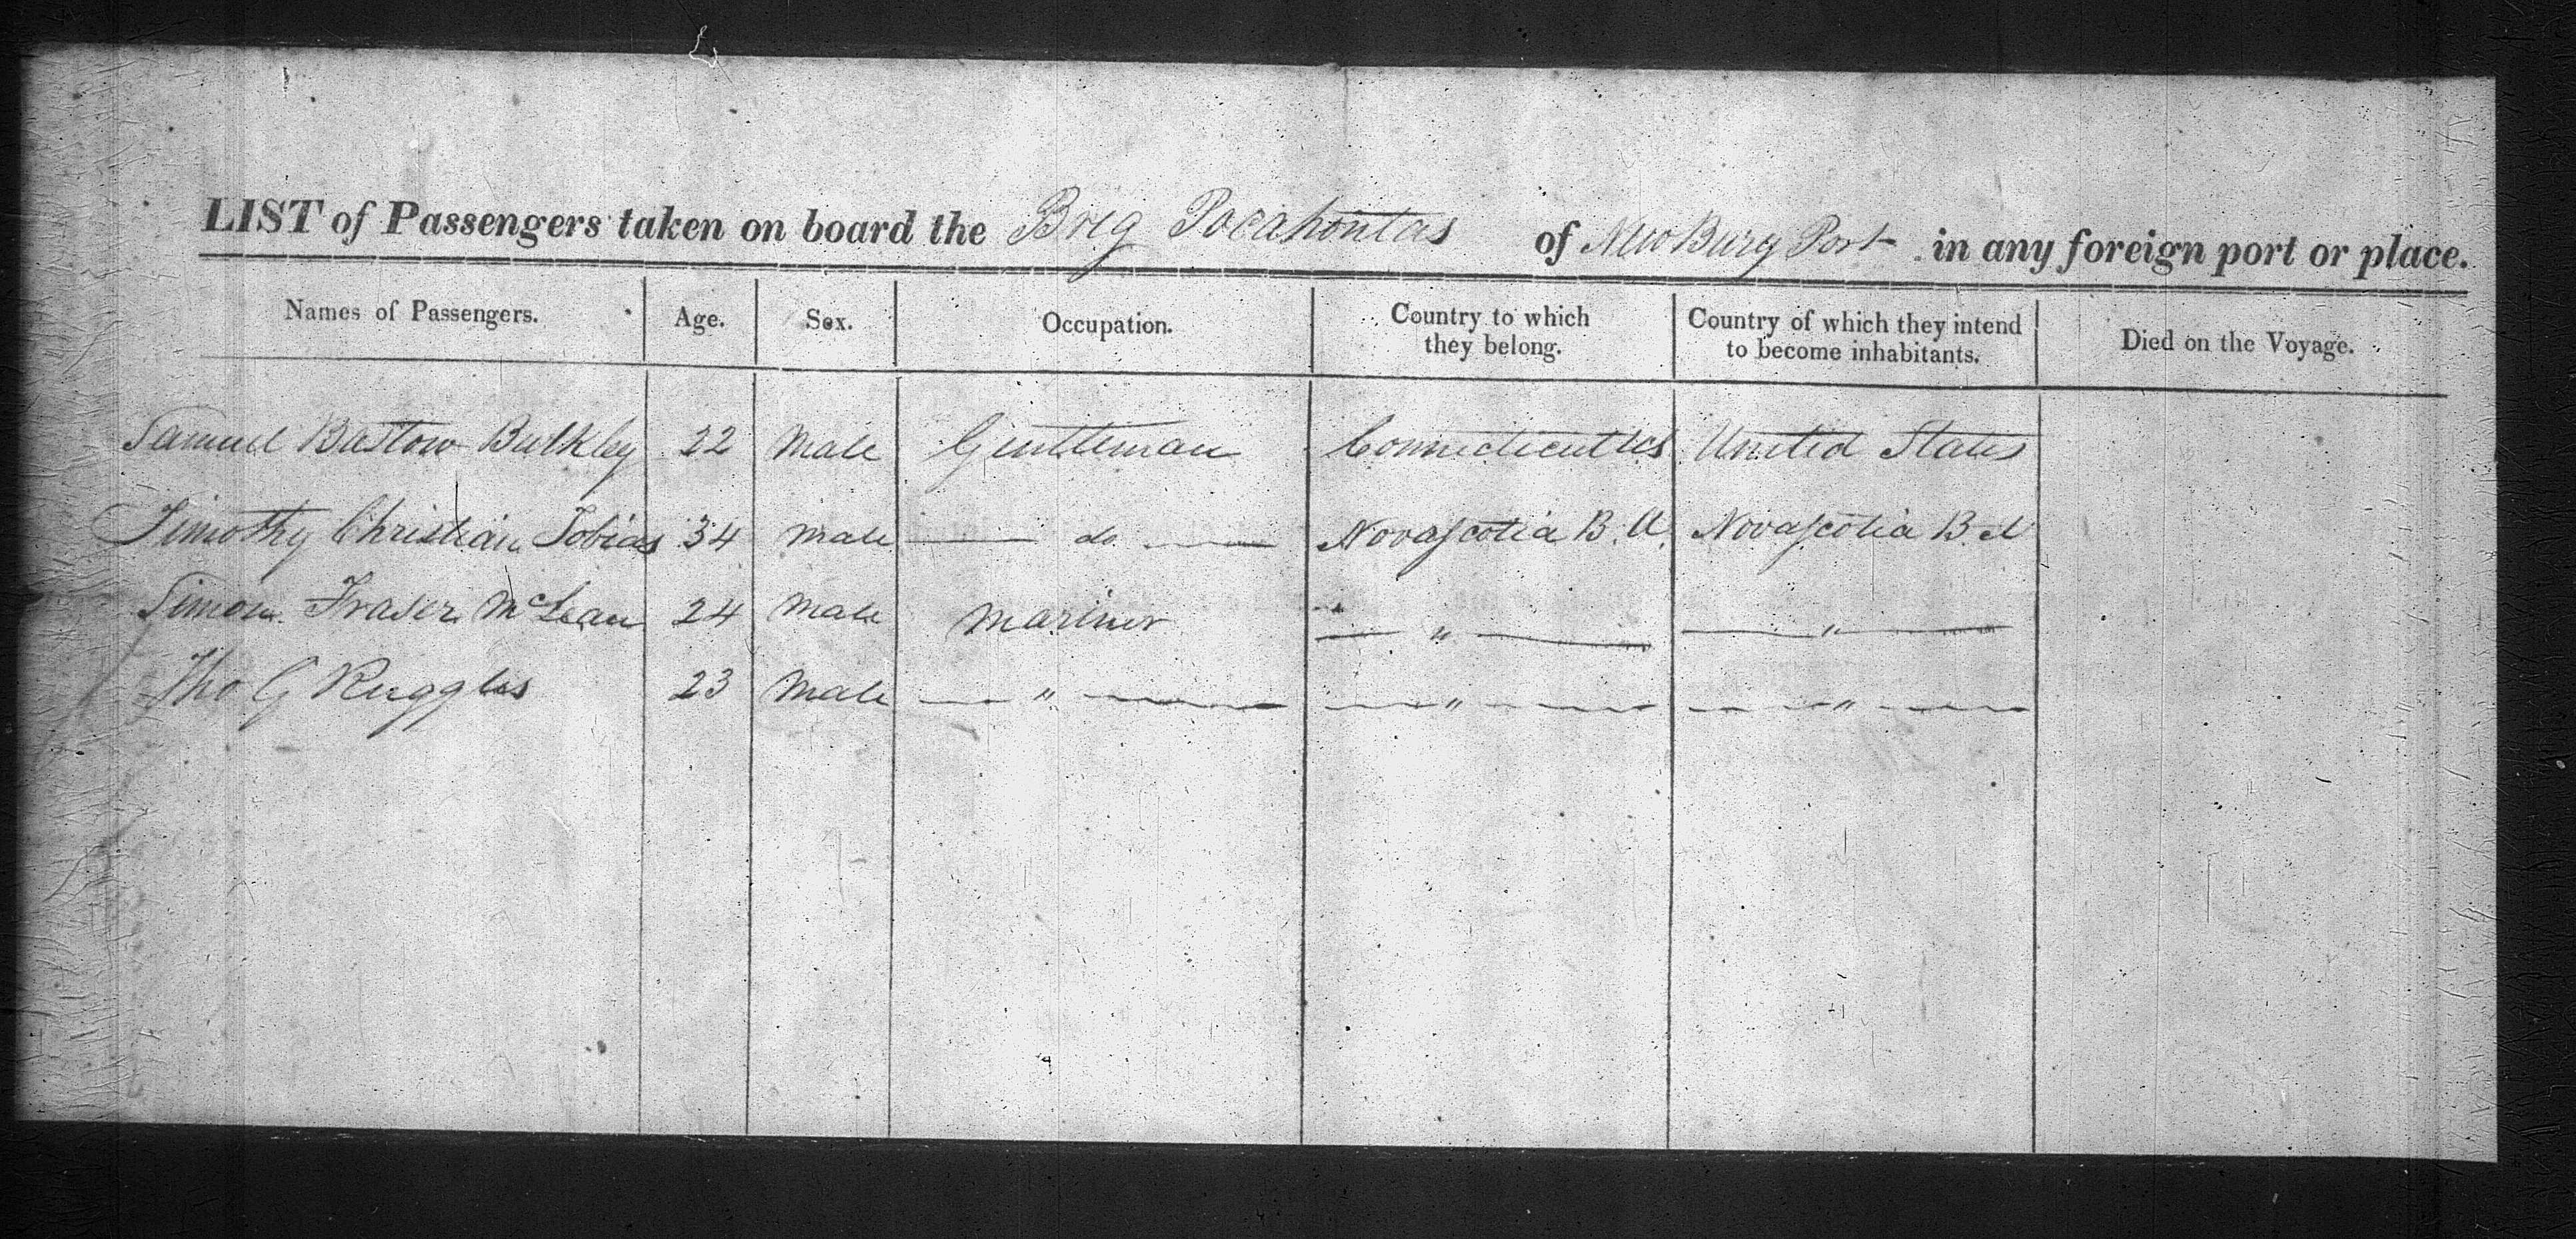 LIST of Passengers taken on board the Breg Pocahontas of New Burg Port in any foreign port or place.
Names of Passengers. Age. Sex. Occupation. Country to which they belong. Country of which they intend to become inhabitants. Died on the Voyage.
Samuel Bastow Bulkley 22 Male Gentleman Connecticut US United States
Timothy Christian Tobias 34 Male — do — Novascotia B. A. Novascotia B. A
Simon Fraser McLean 24 Male Mariner — " — — " —
Tho G Ruggles 23 Male — " — — " — — " —